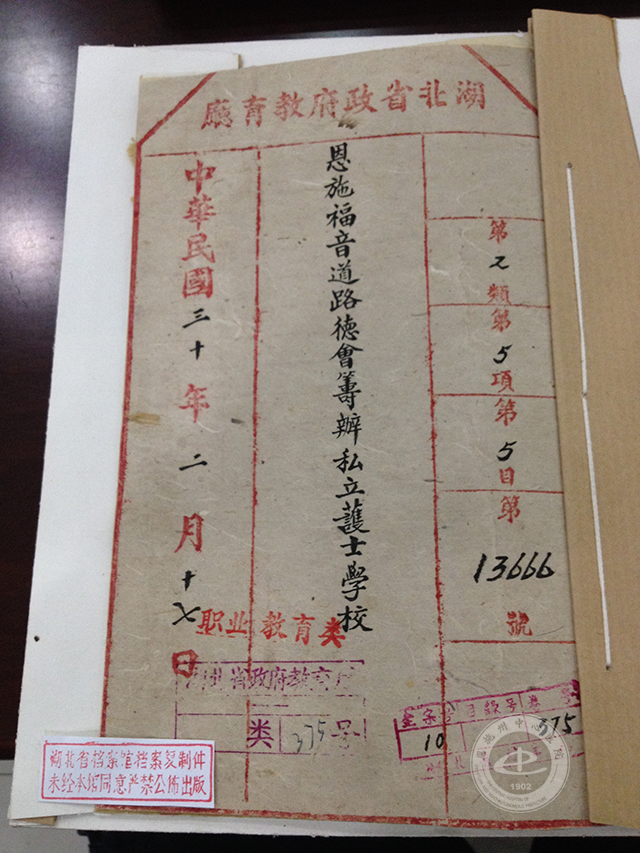 湖北省政府教育廳
第2類第5項第5目第13666號
恩施福音道路德會籌辦私立護士學校
中華民國三十年二月十七日
职业教育类
省政府教育
类 375号
全宗 目録号 卷号
10 375
湖北省档案馆档案复制件
未经本馆同意严禁公佈出版
1902